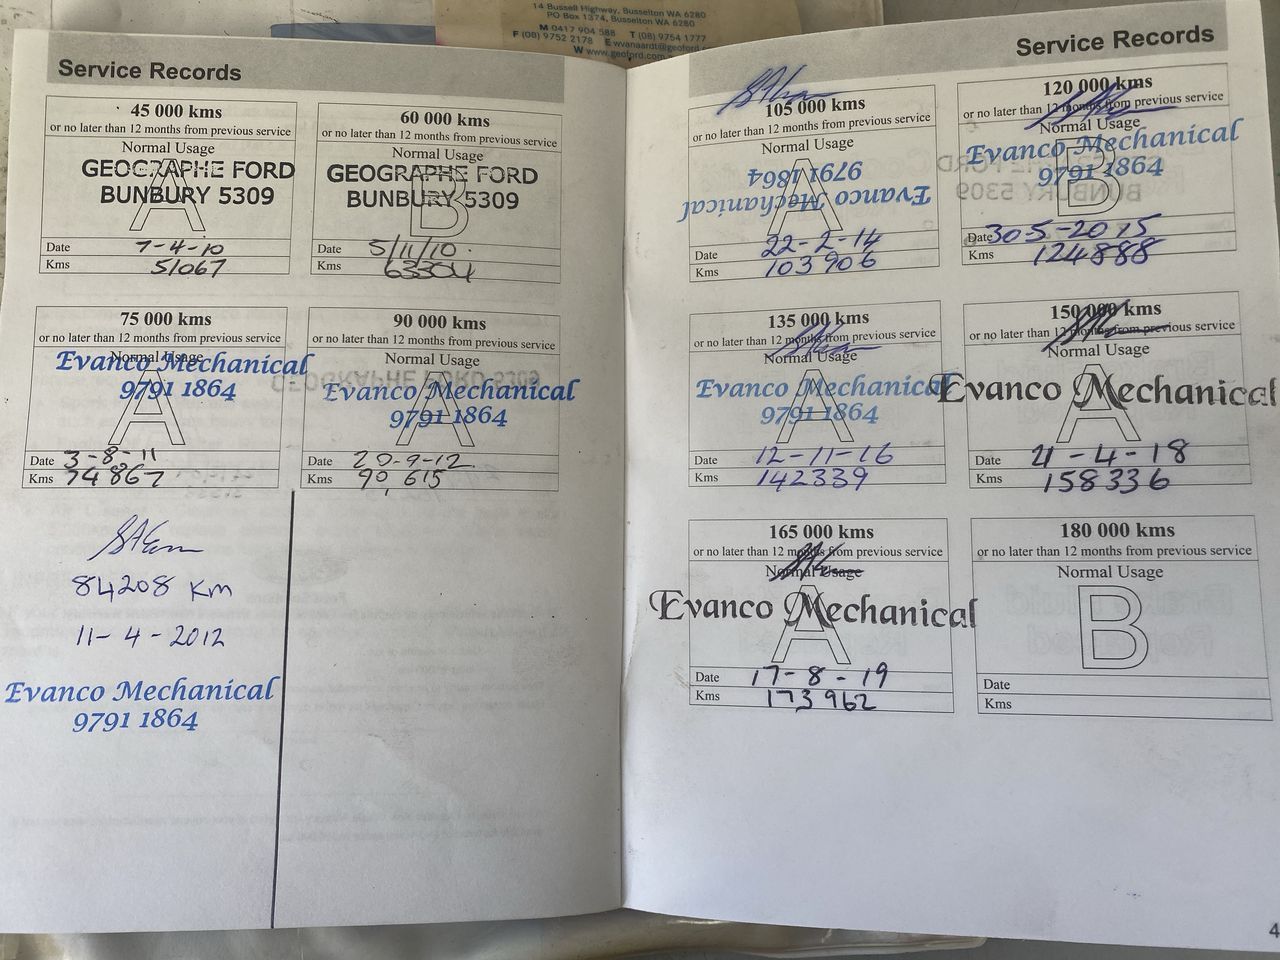 14 Bussell Highway, Busselton WA 6280
PO Box 1374, Busselton WA 6280
M 0417 904 588 T (08) 9754 1777
F (08) 9752 2178 E wvanaardt@geoford.c
W www.geoford.com
Service Records
45 000 kms
or no later than 12 months from previous service
Normal Usage
A
GEOGRAPHE FORD
BUNBURY 5309
Date 7-4-10
Kms 51067
60 000 kms
or no later than 12 months from previous service
Normal Usage
B
GEOGRAPHE FORD
BUNBURY 5309
Date 5/11/10
Kms 63304
75 000 kms
or no later than 12 months from previous service
Normal Usage
A
Evanco Mechanical
9791 1864
Date 3-8-11
Kms 74867
90 000 kms
or no later than 12 months from previous service
Normal Usage
A
Evanco Mechanical
9791 1864
Date 20-9-12
Kms 90,615
84208 Km
11-4-2012
Evanco Mechanical
9791 1864
Service Records
105 000 kms
or no later than 12 months from previous service
Normal Usage
A
Evanco Mechanical
9791 1864
Date 22-2-14
Kms 103906
120 000 kms
or no later than 12 months from previous service
Normal Usage
B
Evanco Mechanical
9791 1864
Date 30-5-2015
Kms 124888
135 000 kms
or no later than 12 months from previous service
Normal Usage
A
Evanco Mechanical
9791 1864
Date 12-11-16
Kms 142339
150 000 kms
or no later than 12 months from previous service
Normal Usage
A
Evanco Mechanical
Date 21-4-18
Kms 158336
165 000 kms
or no later than 12 months from previous service
Normal Usage
A
Evanco Mechanical
Date 17-8-19
Kms 173962
180 000 kms
or no later than 12 months from previous service
Normal Usage
B
Date
Kms
4